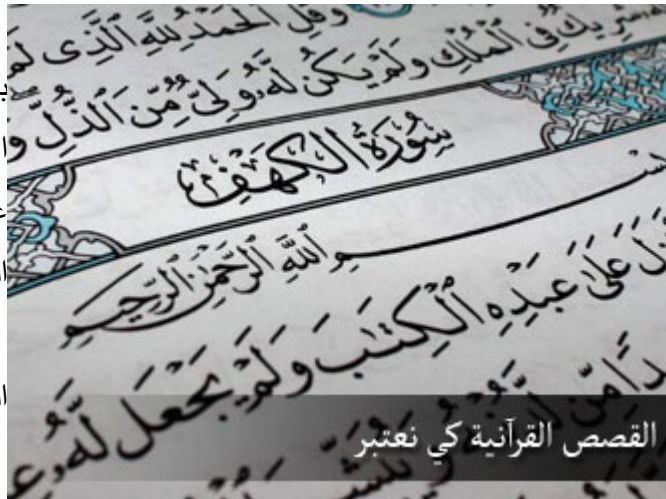 وَقُلِ ٱلْحَمْدُ لِلَّهِ ٱلَّذِى لَمْ
شَرِيكٌ فِى ٱلْمُلْكِ وَلَمْ يَكُن لَّهُۥ وَلِىٌّ مِّنَ ٱلذُّلِّ
سُورَةُ الكَهْفِ
بِسْمِ ٱللَّهِ ٱلرَّحْمَٰنِ ٱلرَّحِيمِ
عَلَىٰ عَبْدِهِ ٱلْكِتَٰبَ وَلَمْ يَجْعَل لَّهُۥ
القصص القرآنية كي نعتبر